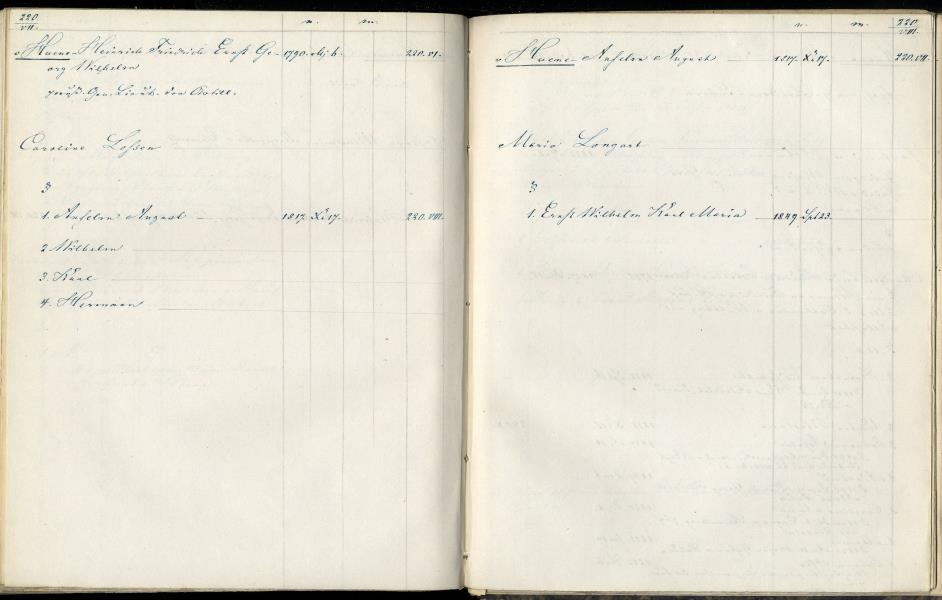 220
VII.
n. m.
v. Huene Heinrich Friedrich Ernst Ge- 1790. 220.VI.
org Wilhelm
preuß. Gen. Lieut. der Artill.
Caroline Lossen
3
1. Anselm August 1817. X. 17. 220.VIII.
2 Wilhelm
3. Karl
4. Hermann
n. m. 220
VIII.
v. Huene Anselm August 1817. X. 17. 220.VII.
Maria Longart
3
1. Ernst Wilhelm Karl Maria 1849 Spt 23.